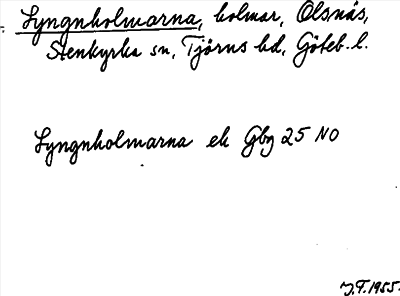 Lyngnholmarna, holmar, Olsnäs,
Stenkyrka sn, Tjörns hd, Göteb. l.
Lyngnholmarna ek Gbg 25 NO
J.F. 1955.